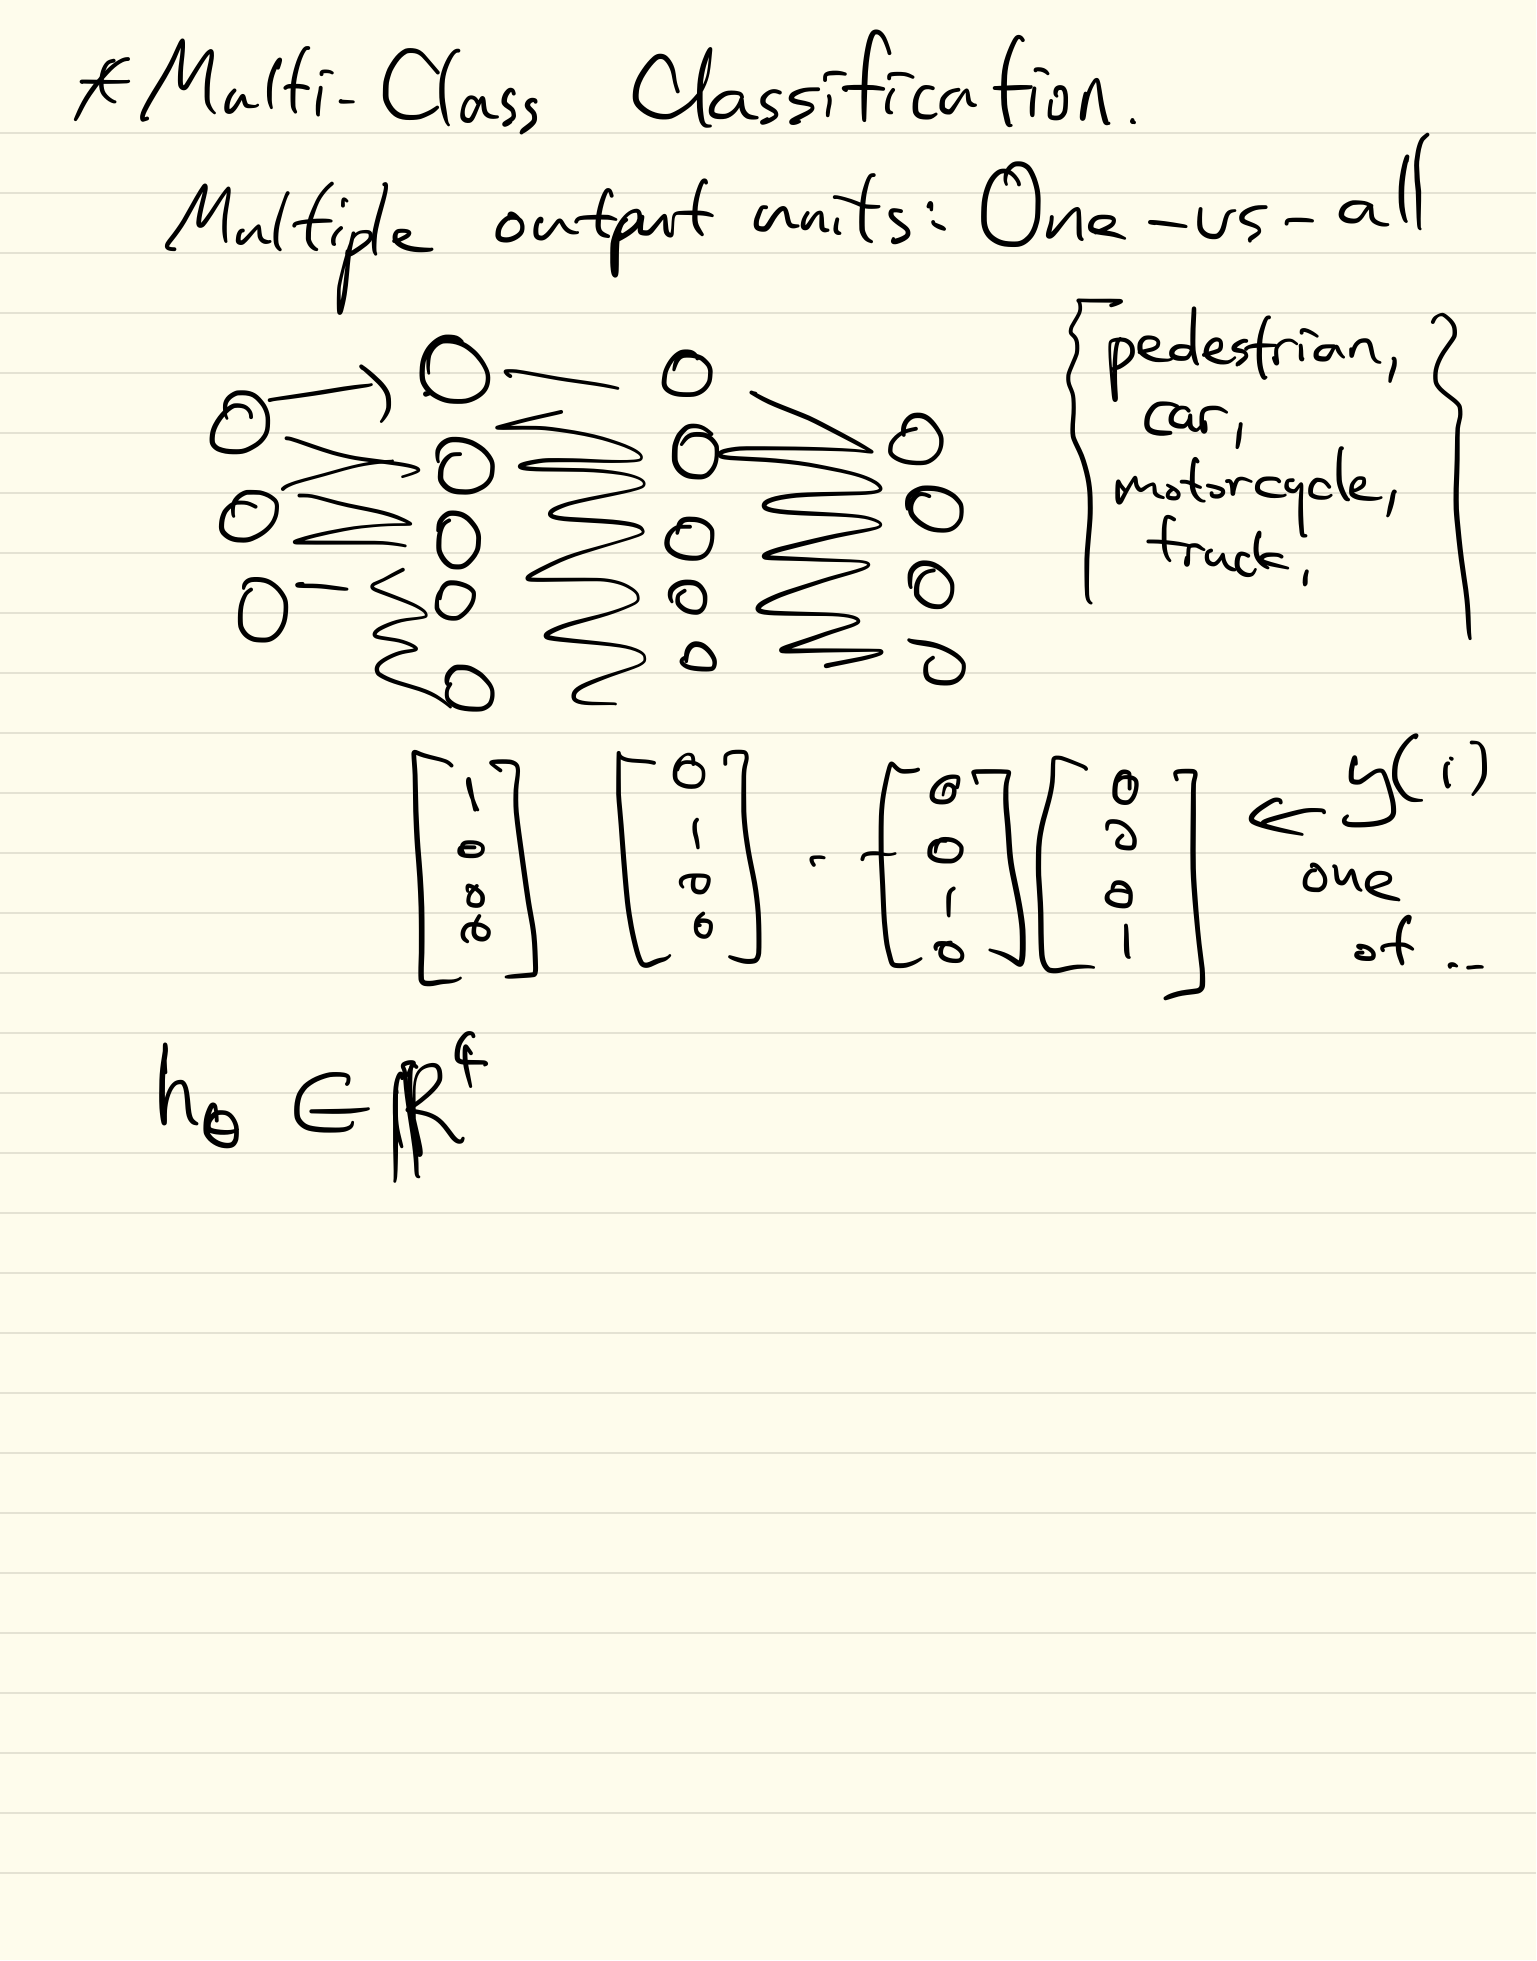 * Multi-Class Classification.
Multiple output units: One-vs-all
{ pedestrian, }
car,
motorcycle,
truck,
[1 0 0 0] [0 1 0 0] -- [0 0 1 0] [0 0 0 1] ← y(i)
one
of ...
hθ ∈ ℝ⁴